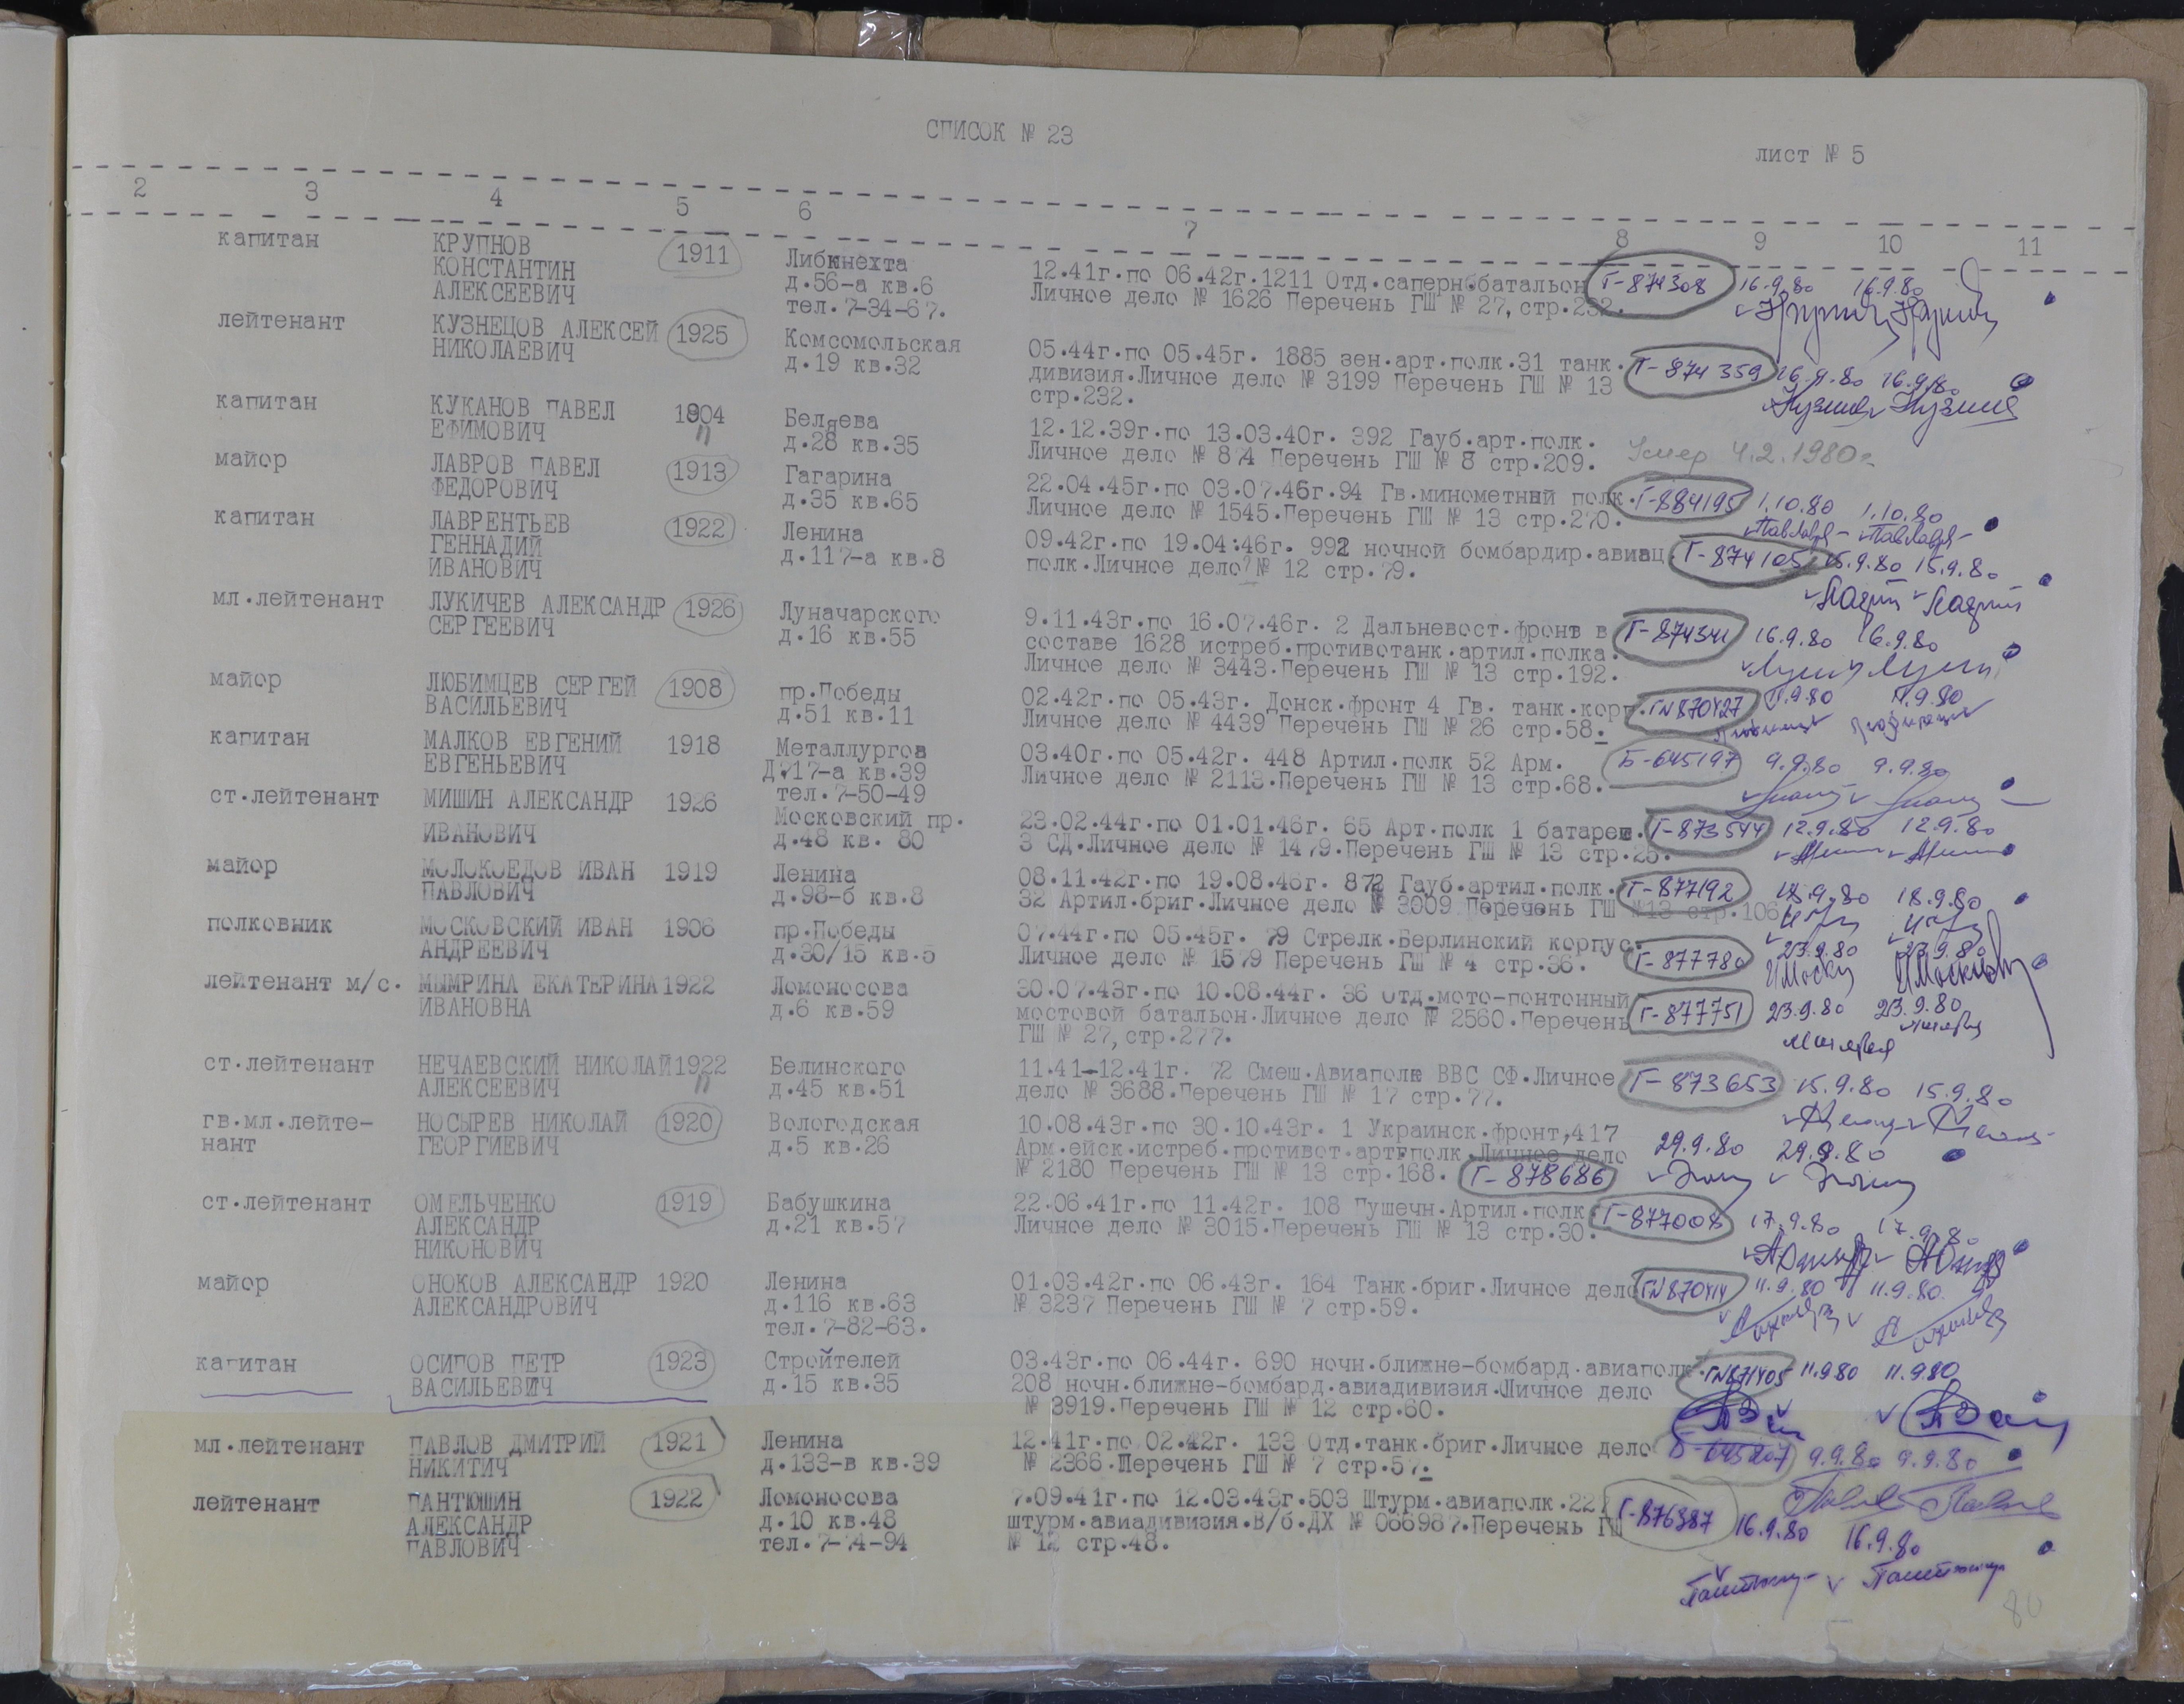 СПИСОК № 23
лист № 5
2 3 4 5 6 7 8 9 10 11
капитан КРУПНОВ 1911 Либкнехта
КОНСТАНТИН д.56-а кв.6 12.41г.по 06.42г.1211 Отд.саперн.батальон Г-874308 16.9.80 16.9.80
АЛЕКСЕЕВИЧ тел.7-34-67. Личное дело № 1626 Перечень ГШ № 27,стр.232.
лейтенант КУЗНЕЦОВ АЛЕКСЕЙ 1925 Комсомольская
НИКОЛАЕВИЧ д.19 кв.32 05.44г.по 05.45г. 1885 зен.арт.полк.31 танк. Г-874359 16.9.80 16.9.80
дивизия.Личное дело № 3199 Перечень ГШ № 13
стр.232.
капитан КУКАНОВ ПАВЕЛ 1904 Беляева
ЕФИМОВИЧ д.28 кв.35 12.12.39г.по 13.03.40г. 392 Гауб.арт.полк.
Личное дело № 874 Перечень ГШ № 8 стр.209. Умер 4.2.1980г.
майор ЛАВРОВ ПАВЕЛ 1913 Гагарина
ФЕДОРОВИЧ д.35 кв.65 22.04.45г.по 03.07.46г.94 Гв.минометный полк. Г-884195 1.10.80 1.10.80
Личное дело № 1545.Перечень ГШ № 13 стр.270.
капитан ЛАВРЕНТЬЕВ 1922 Ленина
ГЕННАДИЙ д.117-а кв.8 09.42г.по 19.04:46г. 992 ночной бомбардир.авиац. Г-874105 15.9.80 15.9.80
ИВАНОВИЧ полк.Личное дело?№ 12 стр.79.
мл.лейтенант ЛУКИЧЕВ АЛЕКСАНДР 1926 Луначарского
СЕРГЕЕВИЧ д.16 кв.55 9.11.43г.по 16.07.46г. 2 Дальневост.фронт в Г-874341 16.9.80 16.9.80
составе 1628 истреб.противотанк.артил.полка.
Личное дело № 3443.Перечень ГШ № 13 стр.192.
майор ЛЮБИМЦЕВ СЕРГЕЙ 1908 пр.Победы
ВАСИЛЬЕВИЧ д.51 кв.11 02.42г.по 05.43г. Донск.фронт 4 Гв. танк.корп. ГN870427
Личное дело № 4439 Перечень ГШ № 26 стр.58.
капитан МАЛКОВ ЕВГЕНИЙ 1918 Металлургов
ЕВГЕНЬЕВИЧ д.17-а кв.39 03.40г.по 05.42г. 448 Артил.полк 52 Арм. Б-645197 9.9.80 9.9.80
тел.7-50-49 Личное дело № 2113.Перечень ГШ № 13 стр.68.
ст.лейтенант МИШИН АЛЕКСАНДР 1926 Московский пр.
ИВАНОВИЧ д.48 кв. 80 23.02.44г.по 01.01.46г. 65 Арт.полк 1 батарея. Г-873544 12.9.80 12.9.80
3 СД.Личное дело № 1479.Перечень ГШ № 13 стр.25.
майор МОЛОКОЕДОВ ИВАН 1919 Ленина
ПАВЛОВИЧ д.98-б кв.8 08.11.42г.по 19.08.46г. 872 Гауб.артил.полк. Г-877192 18.9.80 18.9.80
32 Артил.бриг.Личное дело № 3009 Перечень ГШ №13 стр.106
полковник МОСКОВСКИЙ ИВАН 1906 пр.Победы
АНДРЕЕВИЧ д.30/15 кв.5 07.44г.по 05.45г. 79 Стрелк.Берлинский корпус. Г-877780 23.9.80 23.9.80
Личное дело № 1579 Перечень ГШ № 4 стр.36.
лейтенант м/с. МЫМРИНА ЕКАТЕРИНА 1922 Ломоносова
ИВАНОВНА д.6 кв.59 30.07.43г.по 10.08.44г. 36 Отд.мото-понтонный
мостовой батальон.Личное дело № 2560.Перечень Г-877751 23.9.80 23.9.80
ГШ № 27,стр.277.
ст.лейтенант НЕЧАЕВСКИЙ НИКОЛАЙ 1922 Белинского
АЛЕКСЕЕВИЧ д.45 кв.51 11.41-12.41г. 72 Смеш.Авиаполк ВВС СФ.Личное Г-873653 15.9.80 15.9.80
дело № 3688.Перечень ГШ № 17 стр.77.
гв.мл.лейте- НОСЫРЕВ НИКОЛАЙ 1920 Вологодская
нант ГЕОРГИЕВИЧ д.5 кв.26 10.08.43г.по 30.10.43г. 1 Украинск.фронт,417 29.9.80 29.9.80
Арм.ейск.истреб.противот.арт.полк.Личное дело
№ 2180 Перечень ГШ № 13 стр.168. Г-878686
ст.лейтенант ОМЕЛЬЧЕНКО 1919 Бабушкина 22.06.41г.по 11.42г. 108 Пушечн.Артил.полк. Г-877008 17.9.80 17.9.80
АЛЕКСАНДР д.21 кв.57 Личное дело № 3015.Перечень ГШ № 13 стр.30.
НИКОНОВИЧ
майор ОНОКОВ АЛЕКСАНДР 1920 Ленина 01.03.42г.по 06.43г. 164 Танк.бриг.Личное дело ГN870414 11.9.80 11.9.80
АЛЕКСАНДРОВИЧ д.116 кв.63 № 3237 Перечень ГШ № 7 стр.59.
тел.7-82-63.
капитан ОСИПОВ ПЕТР 1923 Строителей 03.43г.по 06.44г. 690 ночн.ближне-бомбард.авиаполк. ГN871405 11.9.80 11.9.80
ВАСИЛЬЕВИЧ д.15 кв.35 208 ночн.ближне-бомбард.авиадивизия.Личное дело
№ 3919.Перечень ГШ № 12 стр.60.
мл.лейтенант ПАВЛОВ ДМИТРИЙ 1921 Ленина 12.41г.по 02.42г. 133 Отд.танк.бриг.Личное дело Б-645207 9.9.80 9.9.80
НИКИТИЧ д.133-в кв.39 № 2366.Перечень ГШ № 7 стр.57.
лейтенант ПАНТЮШИН 1922 Ломоносова 7.09.41г.по 12.03.43г.503 Штурм.авиаполк.227 Г-876387 16.9.80 16.9.80
АЛЕКСАНДР д.10 кв.48 штурм.авиадивизия.В/б.ДХ № 066987.Перечень ГШ
ПАВЛОВИЧ тел.7-74-94 № 12 стр.48.
80